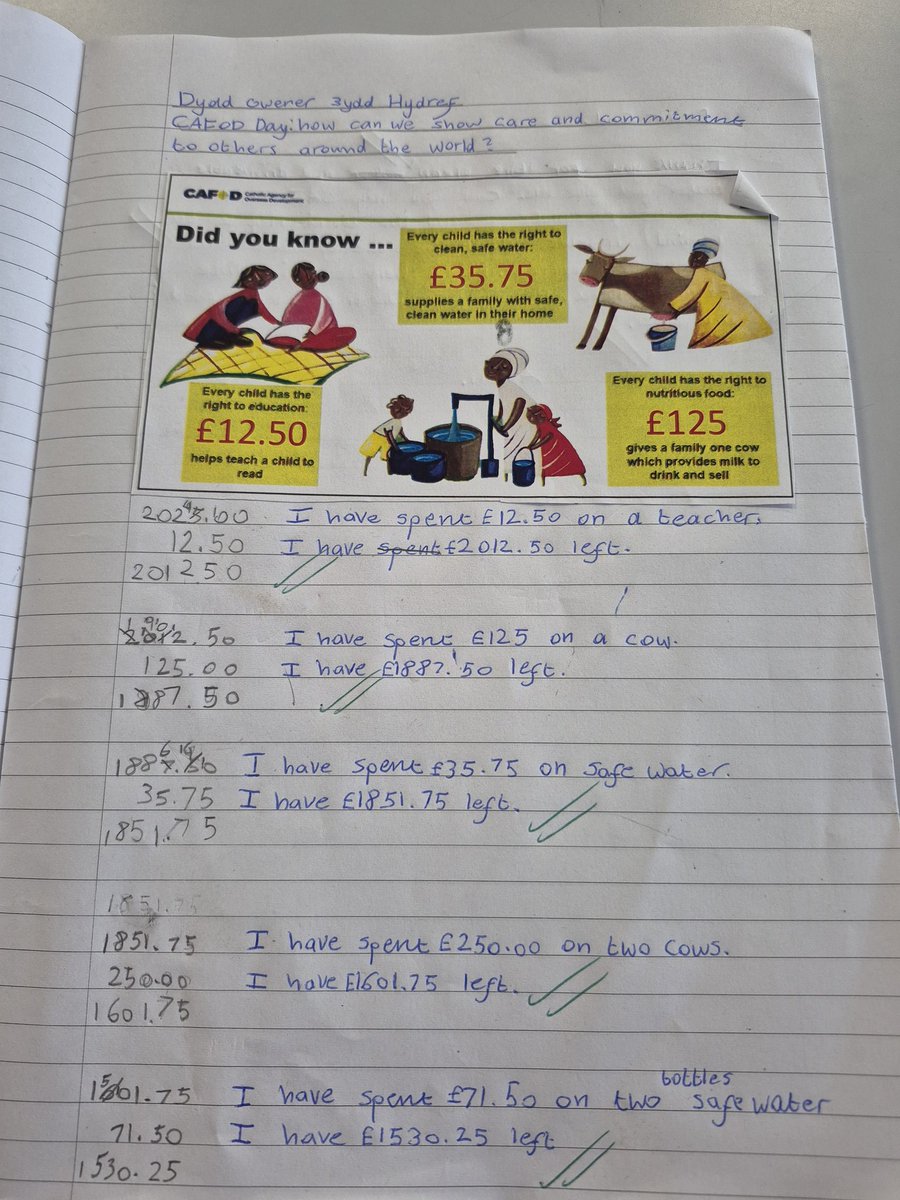 Dydd Gwener 3ydd Hydref
CAFOD Day: how can we show care and commitment
to others around the world?
CAFOD Catholic Agency for
Overseas Development
Did you know ...
Every child has the right to
clean, safe water:
£35.75
supplies a family with safe,
clean water in their home
Every child has the
right to education:
£12.50
helps teach a child to
read
Every child has the right to
nutritious food:
£125
gives a family one cow
which provides milk to
drink and sell
2025.00 I have spent £12.50 on a teacher.
12.50 I have spent £2012.50 left.
201250
2012.50 I have spent £125 on a cow.
125.00 I have £1887.50 left.
1887.50
1887.50 I have spent £35.75 on safe water.
35.75 I have £1851.75 left.
1851.75
1851.75
1851.75 I have spent £250.00 on two cows.
250.00 I have £1601.75 left.
1601.75
bottles
1601.75 I have spent £71.50 on two safe water
71.50 I have £1530.25 left
1530.25